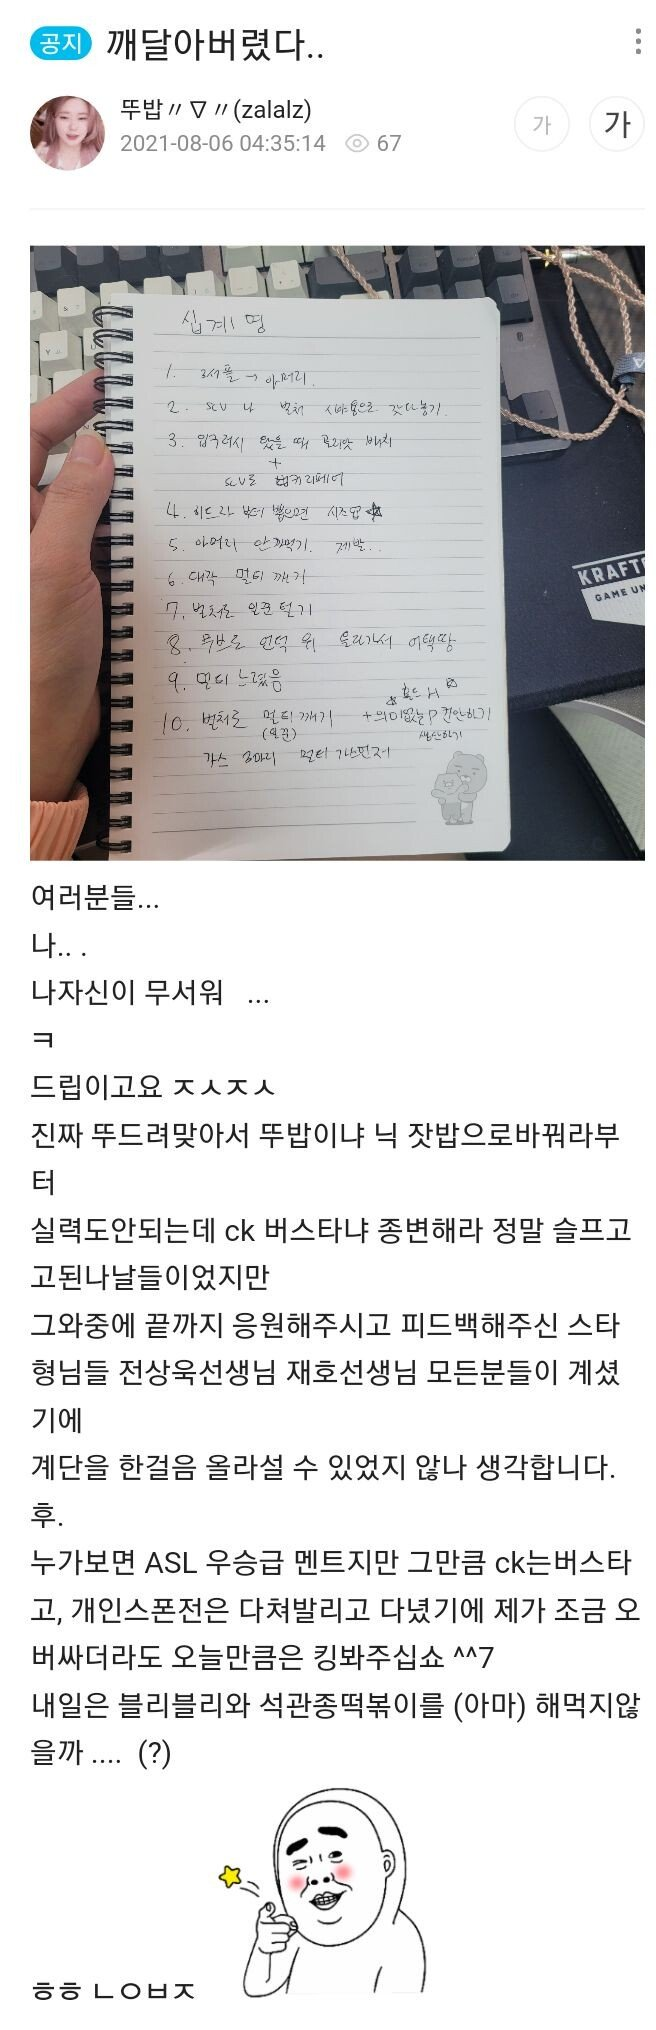 공지 깨달아버렸다..
뚜밥〃∇〃(zalalz)
2021-08-06 04:35:14 67
가 가
십계명
1. 3서플 → 아머리.
2. SCV 나 벌처 시야용으로 갖다놓기.
3. 입구러시 왔을 때 골리앗 배치
+
SCV로 벙커리페어
4. 히드라 보여 뽑으면 시즈업
5. 아머리 안까먹기. 제발..
6. 대각 멀티 깨기
7. 벌처로 일꾼 털기
8. 언덕 위 올라가서
9. 멀티 느렸음
홀드 H
10. 벌처로 멀티 깨기 + 의미없는 P 컨안하기
(일꾼) 생산하기
가스 3마리 멀티
KRAFT
GAME UN
여러분들...
나.. .
나자신이 무서워 ...
ㅋ
드립이고요 ㅈㅅㅈㅅ
진짜 뚜드려맞아서 뚜밥이냐 닉 잣밥으로바꿔라부
터
실력도안되는데 ck 버스타냐 종변해라 정말 슬프고
고된나날들이었지만
그와중에 끝까지 응원해주시고 피드백해주신 스타
형님들 전상욱선생님 재호선생님 모든분들이 계셨
기에
계단을 한걸음 올라설 수 있었지 않나 생각합니다.
후.
누가보면 ASL 우승급 멘트지만 그만큼 ck는버스타
고, 개인스폰전은 다쳐발리고 다녔기에 제가 조금 오
버싸더라도 오늘만큼은 킹봐주십쇼 ^^7
내일은 블리블리와 석관종떡볶이를 (아마) 해먹지않
을까 .... (?)
ㅎㅎ ㄴㅇㅂㅈ